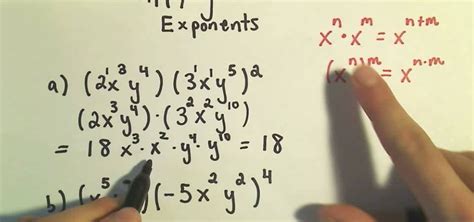 Exponents
xⁿ · xᵐ = xⁿ⁺ᵐ
(xⁿ)ᵐ = xⁿ·ᵐ
a) (2¹x³y⁴)(3¹x¹y⁵)²
(2x³y⁴)·(3²x²y¹⁰)
= 18 x³·x²·y⁴·y¹⁰ = 18
b) (x⁵ )(-5x²y²)⁴